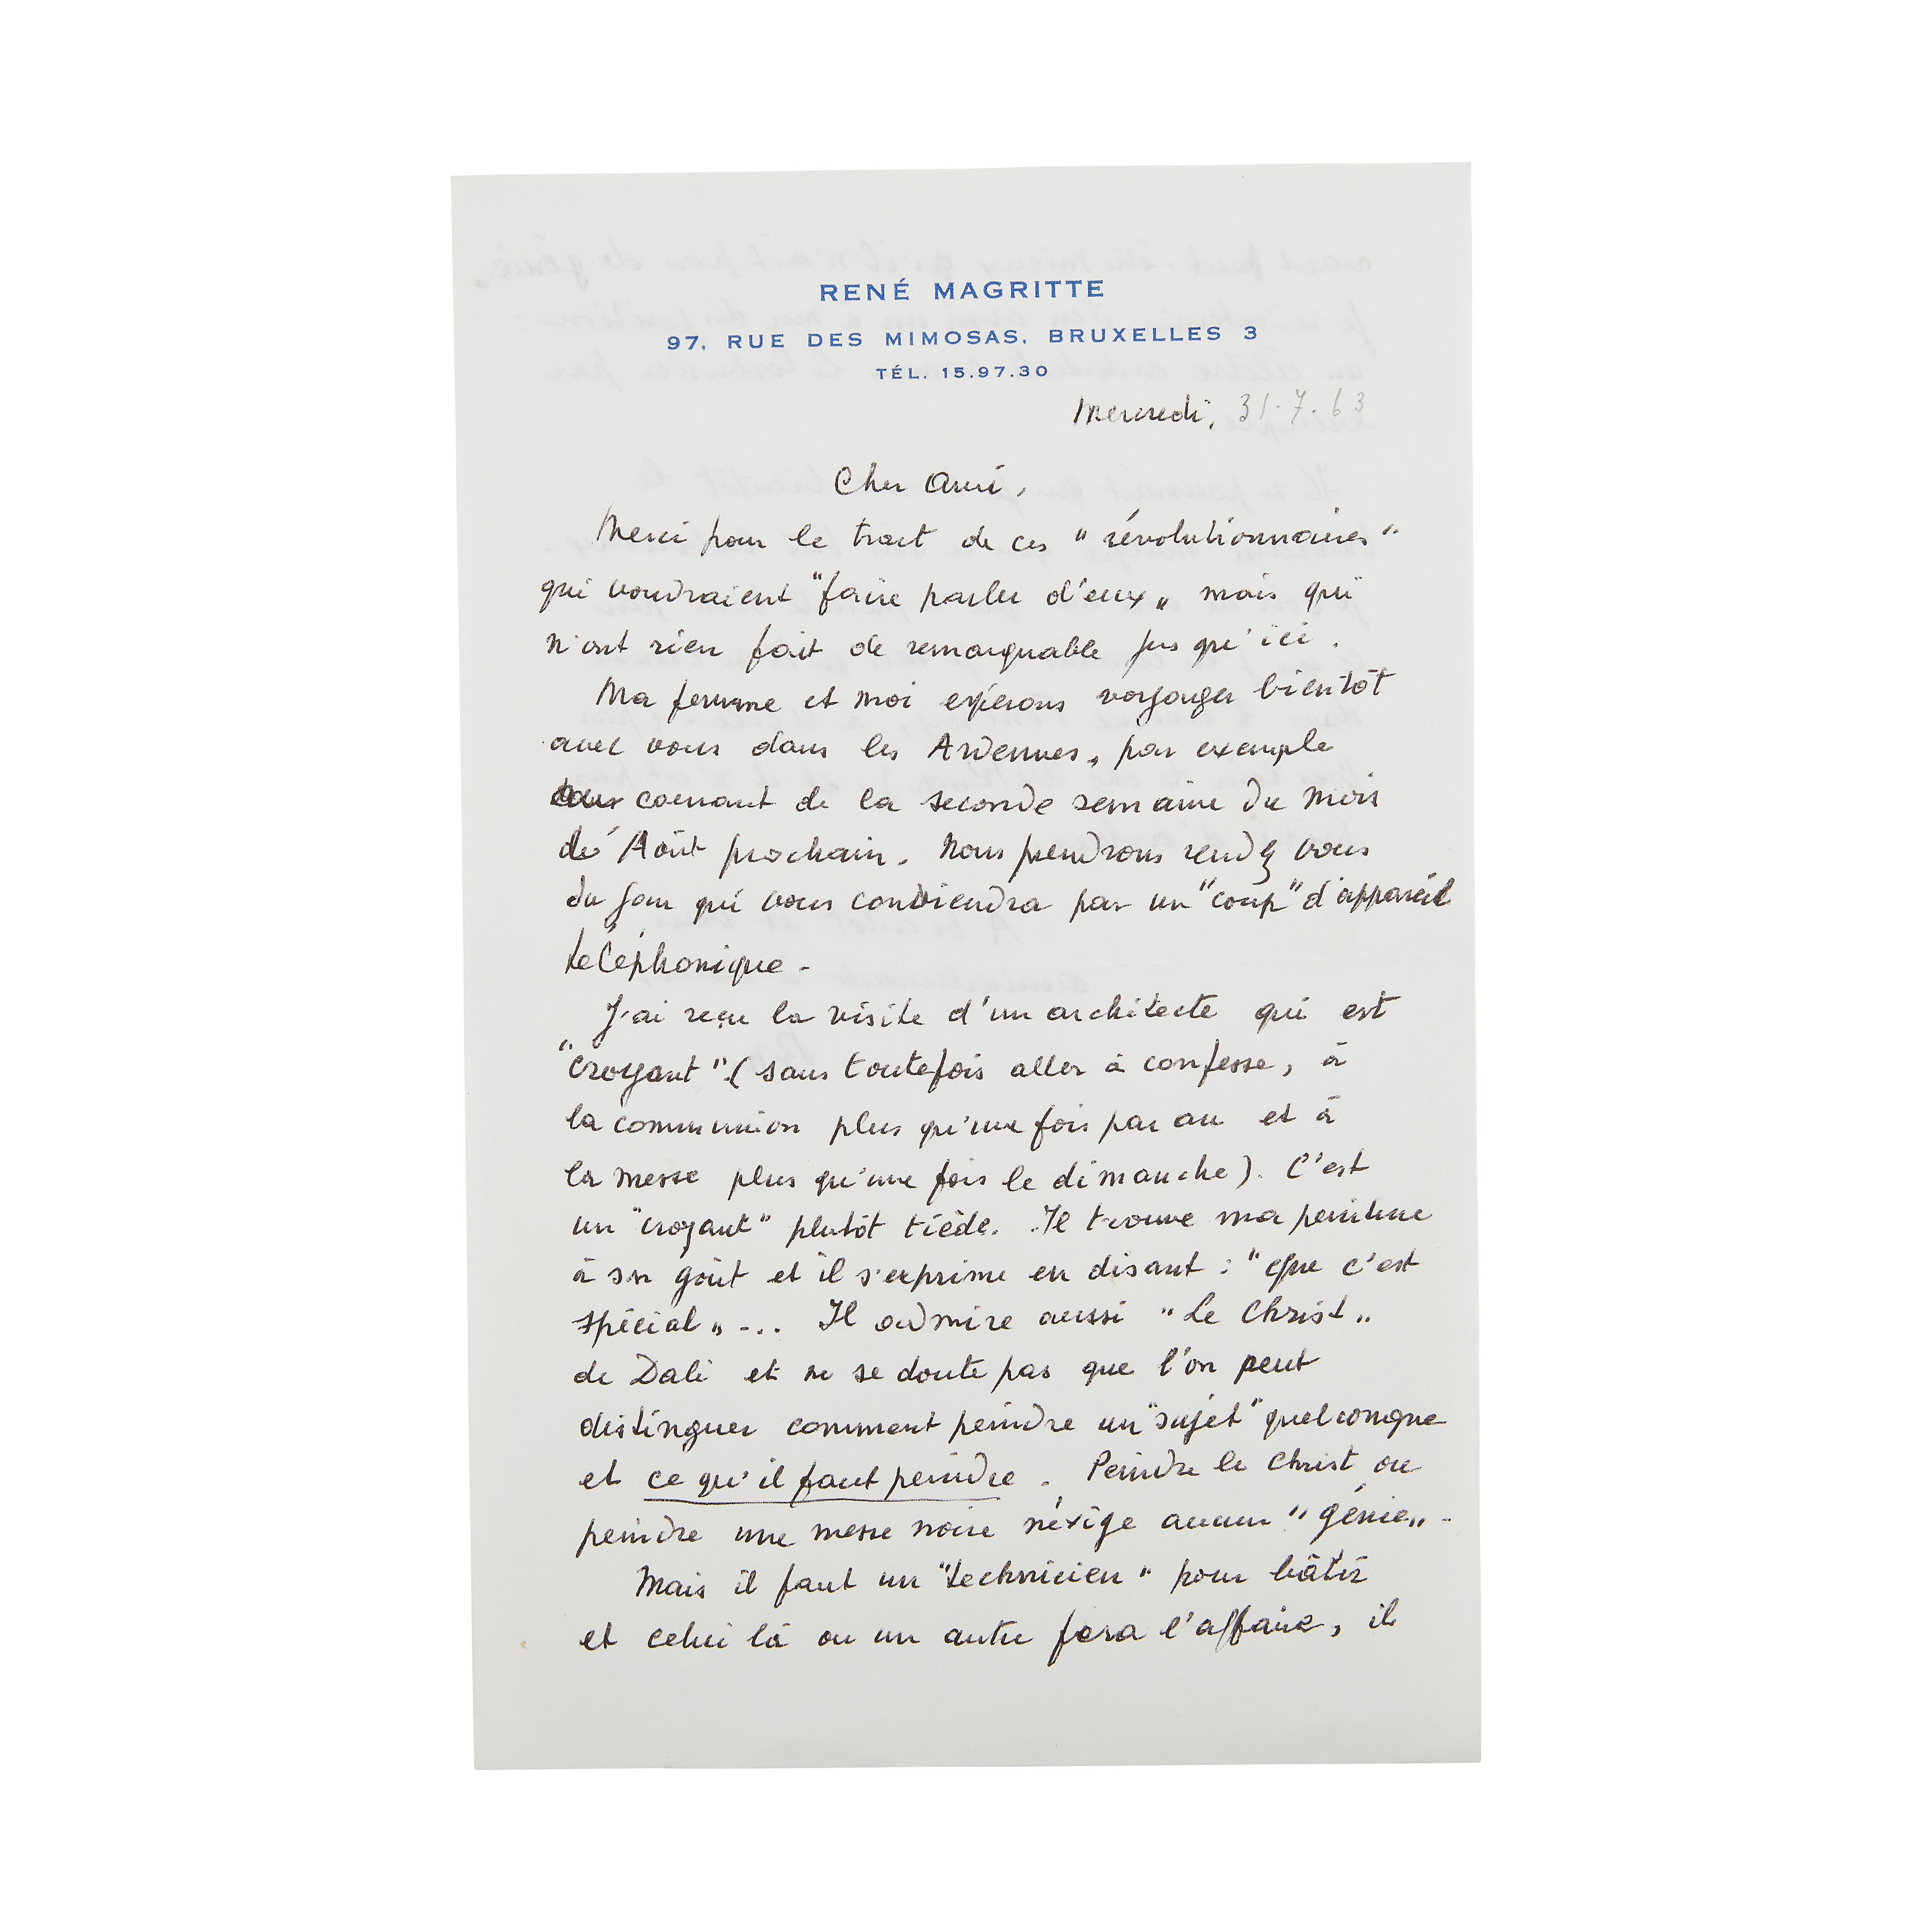 RENÉ MAGRITTE
97, RUE DES MIMOSAS. BRUXELLES 3
TÉL. 15.97.30
Mercredi, 31.7.63
Cher Ami,
Merci pour le tract de ces "révolutionnaires"
qui voudraient "faire parler d'eux" mais qui
n'ont rien fait de remarquable jusqu'ici.
Ma femme et moi espérons voyager bientôt
avec vous dans les Ardennes, par exemple
courant de la seconde semaine du mois
d'Août prochain. Nous prendrons rendez vous
du jour qui vous conviendra par un "coup" d'appareil
téléphonique.
J'ai reçu la visite d'un architecte qui est
"croyant" (sans toutefois aller à confesse, à
la communion plus qu'une fois par an et à
la messe plus qu'une fois le dimanche). C'est
un "croyant" plutôt tiède. Il trouve ma peinture
à son goût et il s'exprime en disant : "que c'est
spécial" ... Il admire aussi "Le Christ"
de Dali et ne se doute pas que l'on peut
distinguer comment peindre un "sujet" quelconque
et ce qu'il faut peindre. Peindre le Christ ou
peindre une messe noire n'éxige aucun "génie" -
Mais il faut un "technicien" pour bâtir
et celui là ou un autre fera l'affaire, il